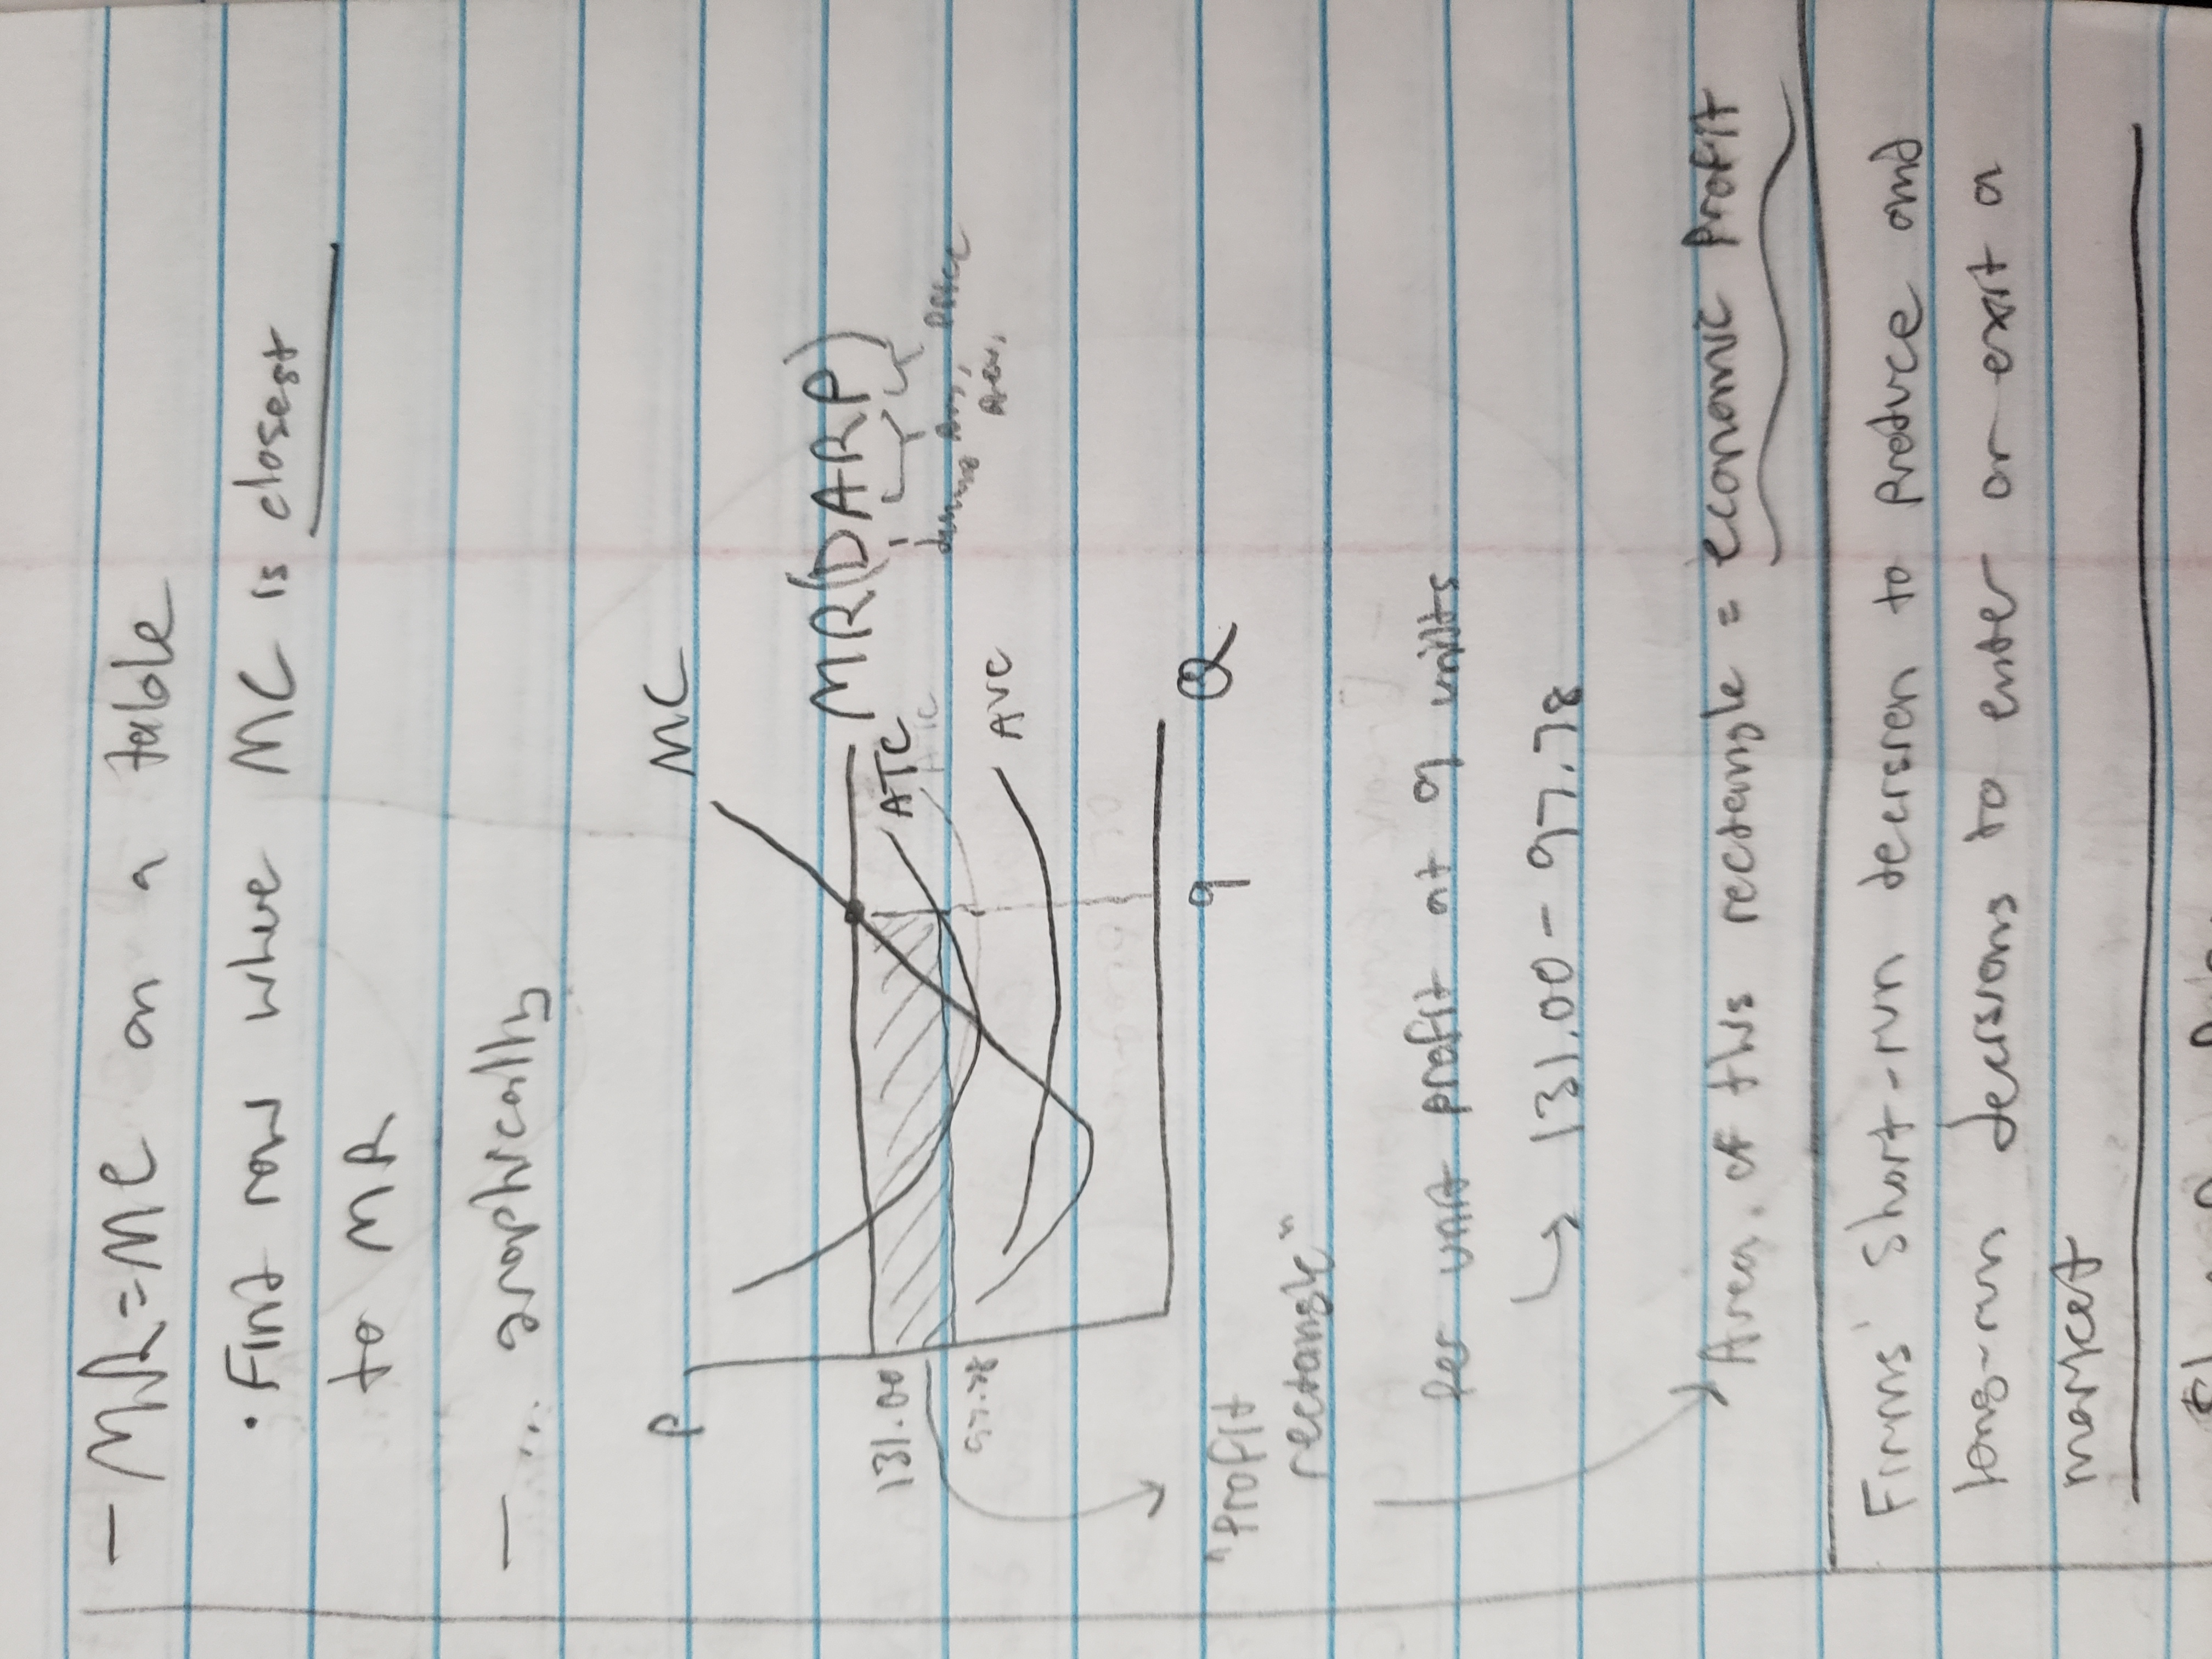 - MR=MC on a table
• Find row where MC is closest
to MR
- ... graphically
P
MC
131.00
MR(DARP)
ATC
97.78
AVC
q
Q
"Profit
rectangle"
Per unit profit at q units
↳ 131.00 - 97.78
Area of this rectangle = economic profit
Firms' short-run decision to produce and
long-run decisions to enter or exit a
market